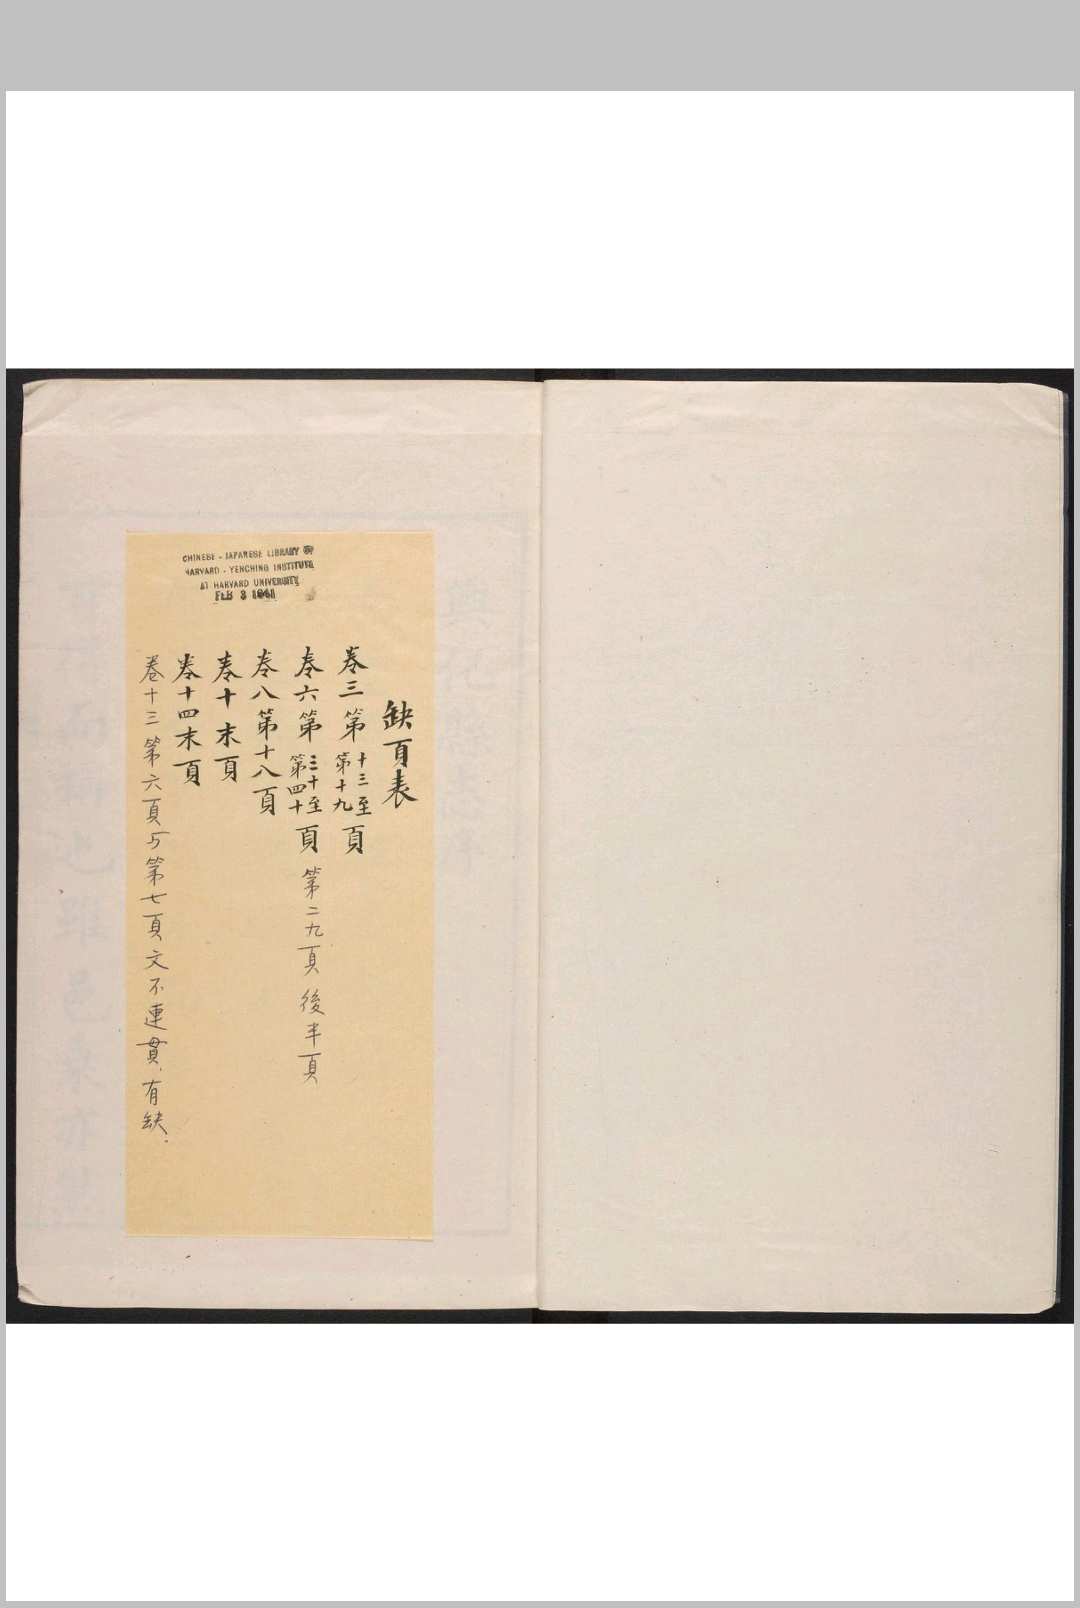 CHINESE - JAPANESE LIBRARY OF
HARVARD - YENCHING INSTITUTE
AT HARVARD UNIVERSITY
FEB 3 1941
缺頁表
卷三第十三至第十九頁
卷六第三十至第四十頁 第二九頁後半頁
卷八第十八頁
卷十末頁
卷十四末頁
卷十三第六頁与第七頁文不連貫.有缺.
興化縣志序